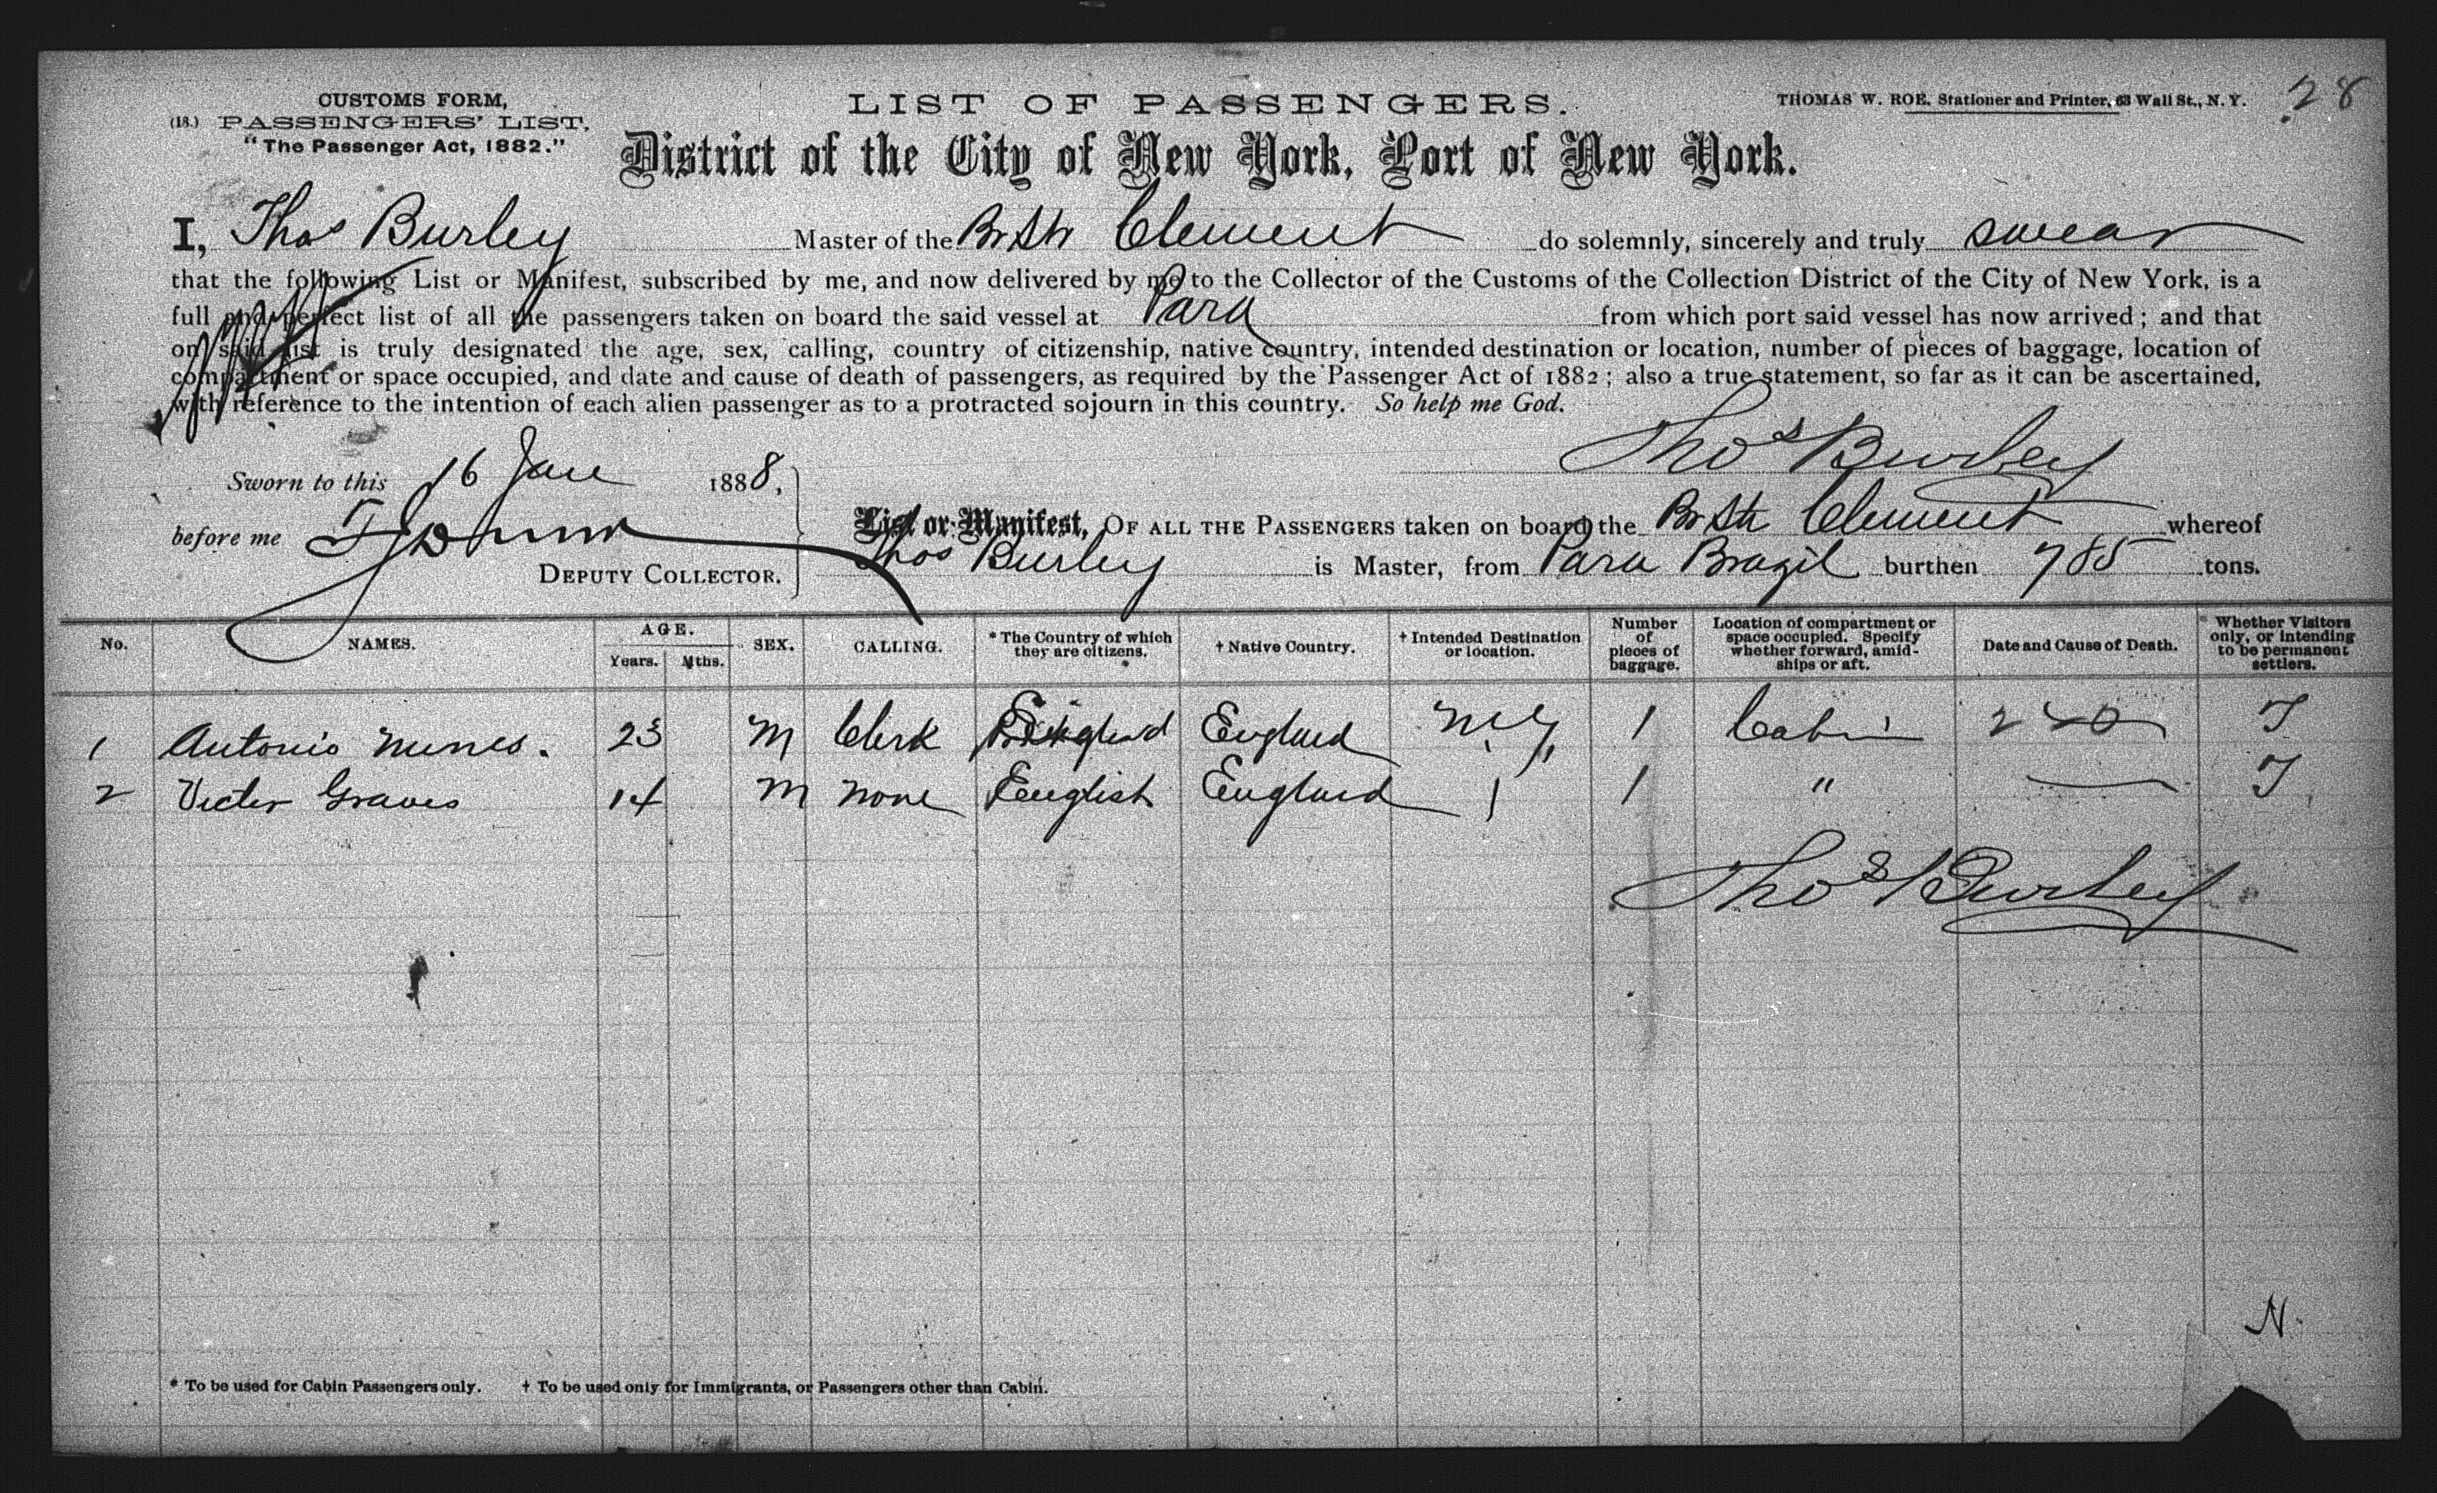 28
CUSTOMS FORM,
(18.) PASSENGERS' LIST,
"The Passenger Act, 1882."
LIST OF PASSENGERS.
THOMAS W. ROE, Stationer and Printer, 63 Wall St., N. Y.
District of the City of New York, Port of New York.
I, Thos Burley Master of the Br Str Clement do solemnly, sincerely and truly swear
that the following List or Manifest, subscribed by me, and now delivered by me to the Collector of the Customs of the Collection District of the City of New York, is a
full and perfect list of all the passengers taken on board the said vessel at Para from which port said vessel has now arrived; and that
on said list is truly designated the age, sex, calling, country of citizenship, native country, intended destination or location, number of pieces of baggage, location of
compartment or space occupied, and date and cause of death of passengers, as required by the Passenger Act of 1882; also a true statement, so far as it can be ascertained,
with reference to the intention of each alien passenger as to a protracted sojourn in this country. So help me God.
Thos Burley
Sworn to this 16 Jan 1888,
before me
DEPUTY COLLECTOR.
List or Manifest, OF ALL THE PASSENGERS taken on board the Br Str Clement whereof
Thos Burley is Master, from Para Brazil burthen 785 tons.
No. NAMES. AGE. Years. Mths. SEX. CALLING. * The Country of which they are citizens. † Native Country. † Intended Destination or location. Number of pieces of baggage. Location of compartment or space occupied. Specify whether forward, amidships or aft. Date and Cause of Death. * Whether Visitors only, or intending to be permanent settlers.
1 Antonio Nunes. 23 M Clerk England England N.Y. 1 Cabin T
2 Victor Graves 14 M None English England 1 " T
Thos Burley
N.
* To be used for Cabin Passengers only. † To be used only for Immigrants, or Passengers other than Cabin.